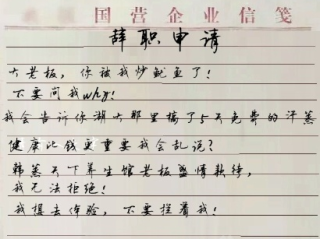 国营企业信笺
辞职申请
大老板，你被我炒鱿鱼了！
不要问我why！
我会告诉你湖大那里搞了5天免费的汗蒸
健康比钱更重要我会乱说？
韩蒸天下养生馆老板盛情款待，
我无法拒绝！
我想去体验，不要拦着我！